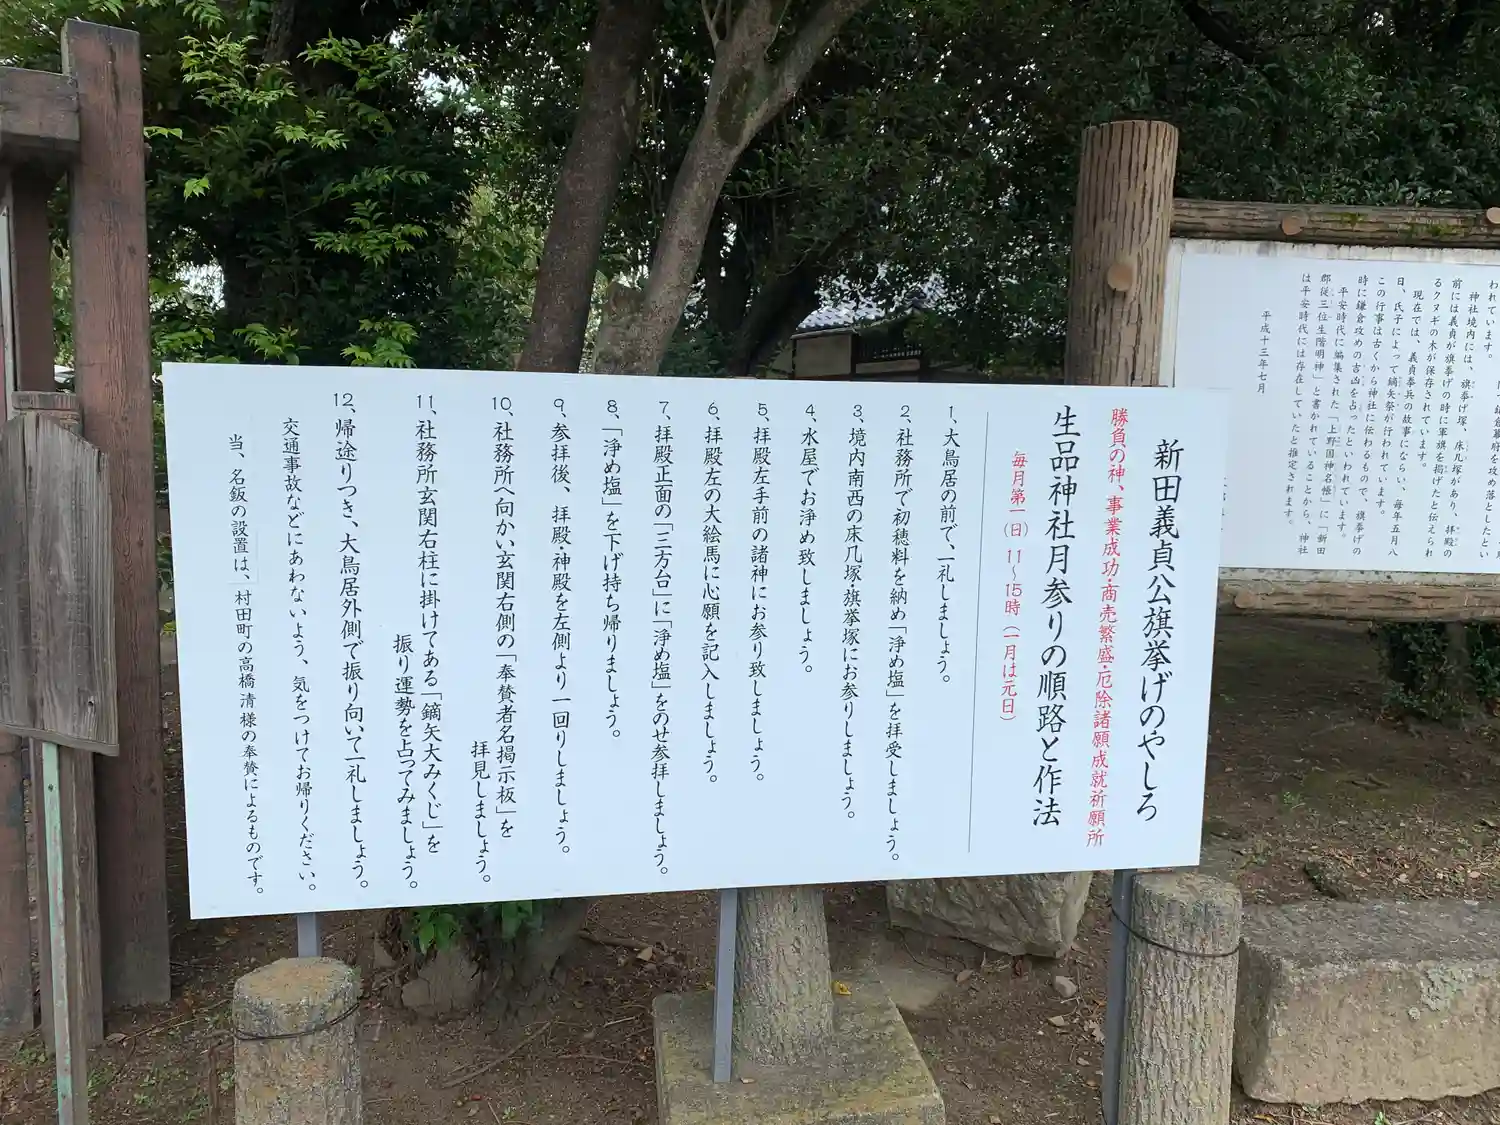 われています。
神社境内には、旗挙げ塚、床几塚があり、拝殿の
前には義貞が旗挙げの時に軍旗を掲げたと伝えられ
るクヌギの木が保存されています。
現在では、義貞挙兵の故事にならい、毎年五月八
日、氏子によって鏑矢祭が行われています。
この行事は古くから神社に伝わるもので、旗挙げの
時に鎌倉攻めの吉凶を占ったといわれています。
平安時代に編集された「上野国神名帳」に「新田
郡従三位生階明神」と書かれていることから、神社
は平安時代には存在していたと推定されます。
平成十三年七月
新田義貞公旗挙げのやしろ
勝負の神、事業成功・商売繁盛・厄除諸願成就祈願所
生品神社月参りの順路と作法
毎月第一(日)11〜15時(一月は元日)
1、大鳥居の前で、一礼しましょう。
2、社務所で初穂料を納め「浄め塩」を拝受しましょう。
3、境内南西の床几塚・旗挙塚にお参りしましょう。
4、水屋でお浄め致しましょう。
5、拝殿左手前の諸神にお参り致しましょう。
6、拝殿左の大絵馬に心願を記入しましょう。
7、拝殿正面の「三方台」に「浄め塩」をのせ参拝しましょう。
8、「浄め塩」を下げ持ち帰りましょう。
9、参拝後、拝殿・神殿を左側より一回りしましょう。
10、社務所へ向かい玄関右側の「奉賛者名掲示板」を
拝見しましょう。
11、社務所玄関右柱に掛けてある「鏑矢大みくじ」を
振り運勢を占ってみましょう。
12、帰途りつき、大鳥居外側で振り向いて一礼しましょう。
交通事故などにあわないよう、気をつけてお帰りください。
当、名鈑の設置は、村田町の高橋清様の奉賛によるものです。